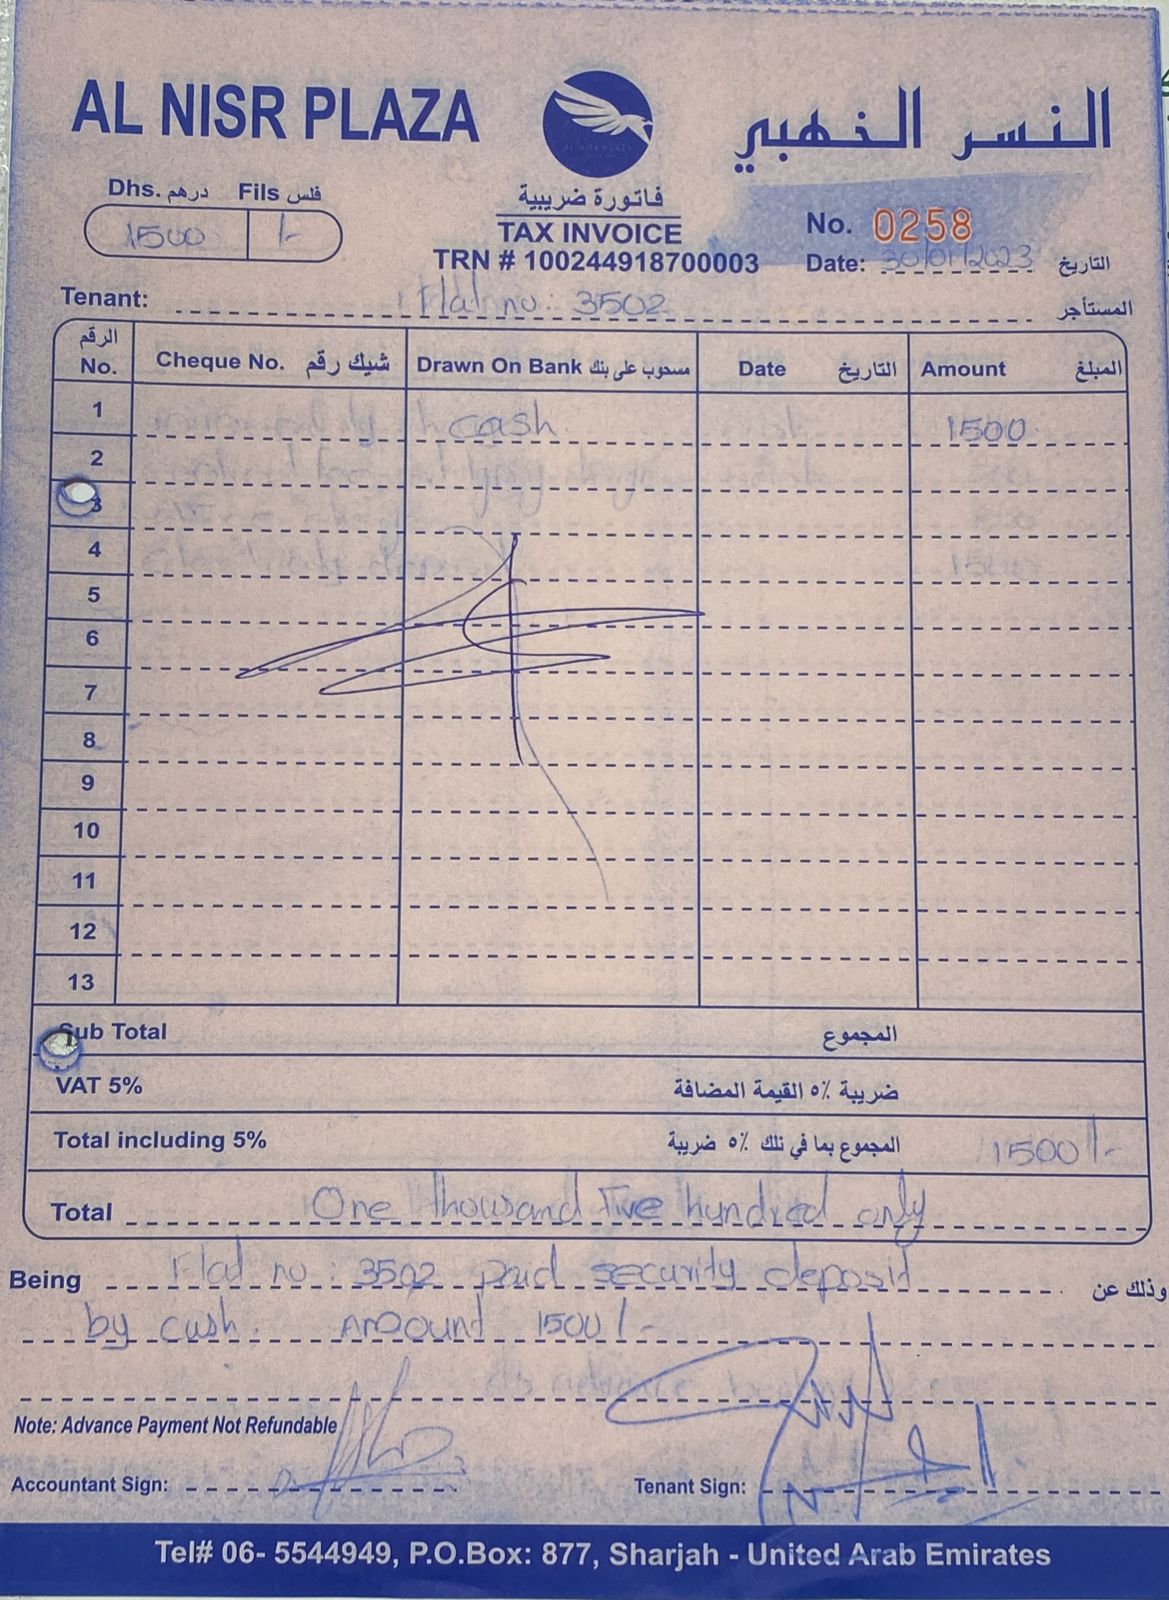 AL NISR PLAZA
النسر الذهبي
AL NISR PLAZA
Dhs. درهم Fils فلس
1500 /-
فاتورة ضريبية
TAX INVOICE
TRN # 100244918700003
No. 0258
Date: 30/01/2023 التاريخ
Tenant: Flat no: 3502 المستأجر
الرقم No. Cheque No. شيك رقم Drawn On Bank مسحوب على بنك Date التاريخ Amount المبلغ
1 cash. 1500
2
3
4
5
6
7
8
9
10
11
12
13
Sub Total المجموع
VAT 5% ضريبة ٥٪ القيمة المضافة
Total including 5% المجموع بما في تلك ٥٪ ضريبة 1500/-
Total One thousand Five hundred only
Being Flat no: 3502 paid security deposit وذلك عن
by cash. Amount 1500/-
Note: Advance Payment Not Refundable
Accountant Sign: Tenant Sign:
Tel# 06- 5544949, P.O.Box: 877, Sharjah - United Arab Emirates